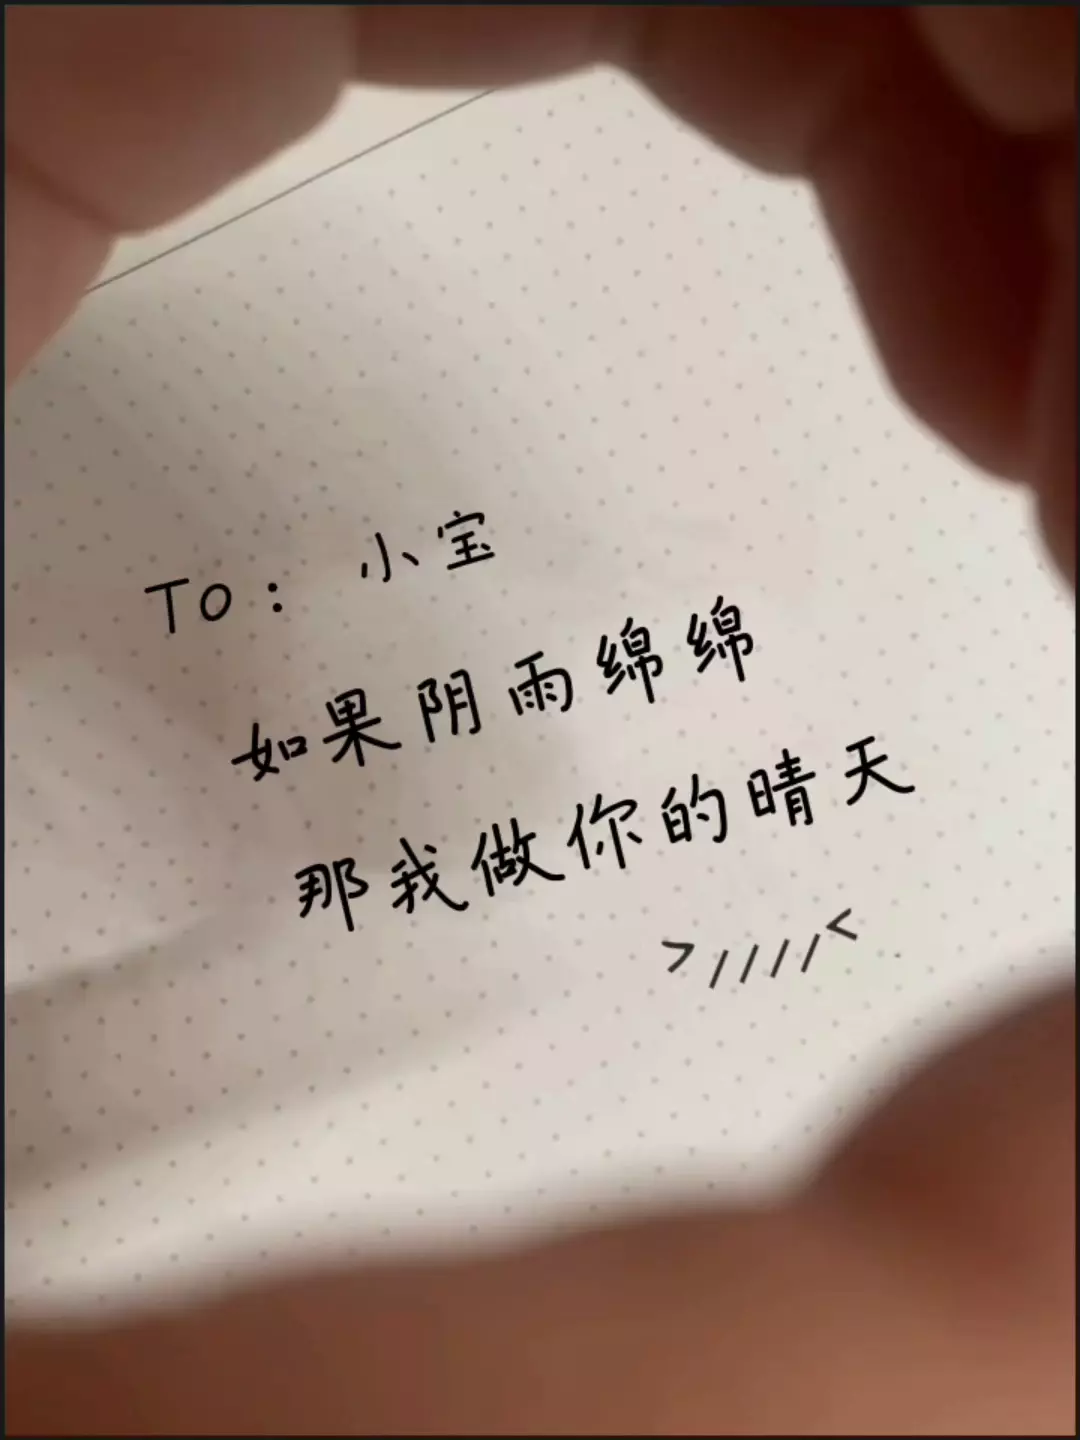 TO：小宝
如果阴雨绵绵
那我做你的晴天
>////<